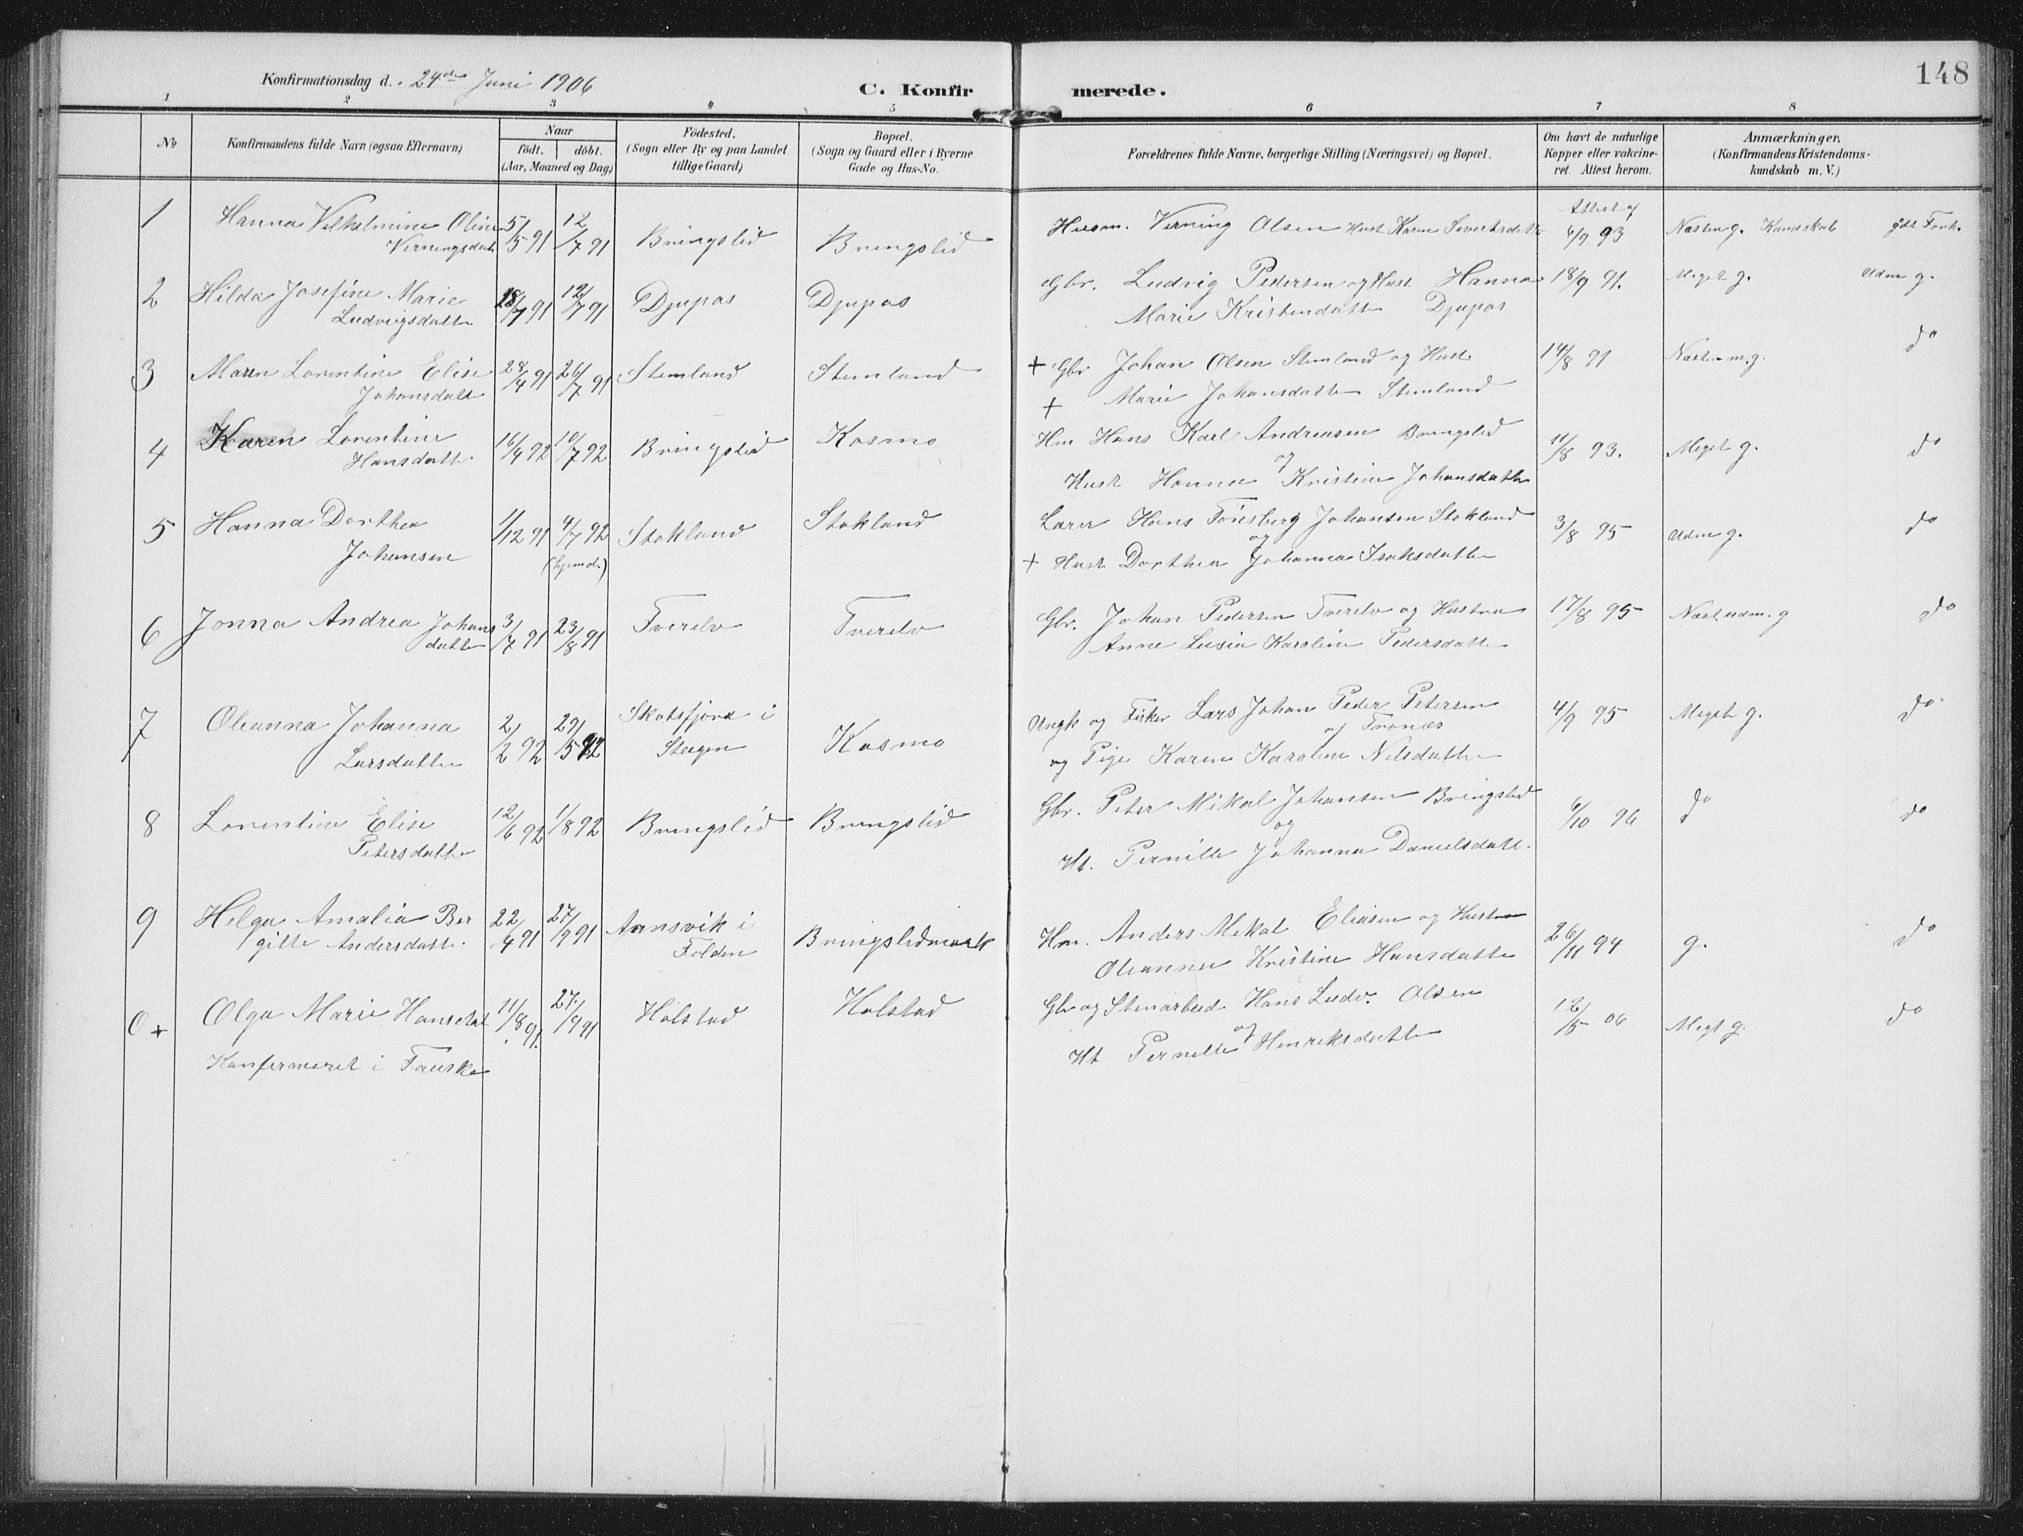 148
Konfirmationsdag d. 24de Juni 1906
C. Konfirmerede.
1 2 3 4 5 6 7 8
No
Konfirmandens fulde Navn (ogsaa Efternavn)
Naar
födt. döbt.
(Aar, Maaned og Dag)
Födested.
(Sogn eller By og paa Landet
tillige Gaard)
Bopæl.
(Sogn og Gaard eller i Byerne
Gade og Hus-No.
Forældrenes fulde Navne, borgerlige Stilling (Næringsvei) og Bopæl.
Om havt de naturlige
Kopper eller vakcine-
ret. Attest herom.
Anmærkninger.
(Konfirmandens Kristendoms-
kundskab m. V.)
1 Hanna Vilhelmine Oline 5/5 91 12/7 91 Bringslid Bringslid Husm. Verning Olsen Hust Karen Sivertsdatt Attest af 4/9 93 Næsten g. Kundskab gdt Forh.
Verningsdatt
2 Hilda Josefine Marie 28/7 91 12/7 91 Djupos Djupos Gbr. Ludvig Pedersen og Hust Hanna 18/9 91. Meget g. Udm g.
Ludvigsdatt Marie Kristensdatt Djupos
3 Maren Lorentine Elise 28/4 91 26/7 91 Stemland Stemland + Gbr Johan Olsen Stemland og Hust 14/8 91 Næsten m.g. do
Johansdatt + Marie Johansdatte Stemland
4 Karen Lorentine 16/4 92 10/7 92 Bringslid Kosmo Hm Hans Karl Andreasen Bringslid 11/8 93. Meget g. do
Hansdatte og
Hust Hanna Kristine Johansdatte
5 Hanna Dorthea 1/12 91 4/7 92 Stokland Stokland Lærer Hans Tönsberg Johansen Stokland 3/8 95 Udm g. do
Johansen (hjemd.) og
+ Hust Dorthea Johanna Isaksdatte
6 Jonna Andrea Johans 3/7 91 23/8 91 Tverelv Tverelv Gbr. Johan Pedersen Tverelv og Hustru 17/8 95 Næst udm. g do
datte Anne Lusia Karoline Pedersdatte
7 Oleanna Johanna 2/2 92 29/5 92 Skotsfjord i Kosmo Ungk og Fisker Lars Johan Peder Petersen 4/9 95 Meget g. do
Larsdatte Stegen af Tronæs
og Pige Karen Karoline Nilsdatte
8 Lorentine Elise 12/6 92 1/8 92 Bringslid Bringslid Gbr. Peter Mikal Johansen Bringslid 6/10 96 do do
Petersdatte og
Ht. Pernille Johanna Danielsdatt.
9 Helga Amalia Ber 22/4 91 27/9 91 Aansvik i Bringslidmark Hm. Anders Mikal Eliasen og Hustru 26/11 94 g. do
gitte Andersdatt. Folden Oleanna Kristine Hansdatte
0 + Olga Marie Hansdat 11/8 91. 27/9 91 Holstad Holstad Gbr og Stenarbeid. Hans Ludv. Olsen 12/5 06 Megt g. do
og
Konfirmeret i Fauske Ht Pernille Henriksdatte